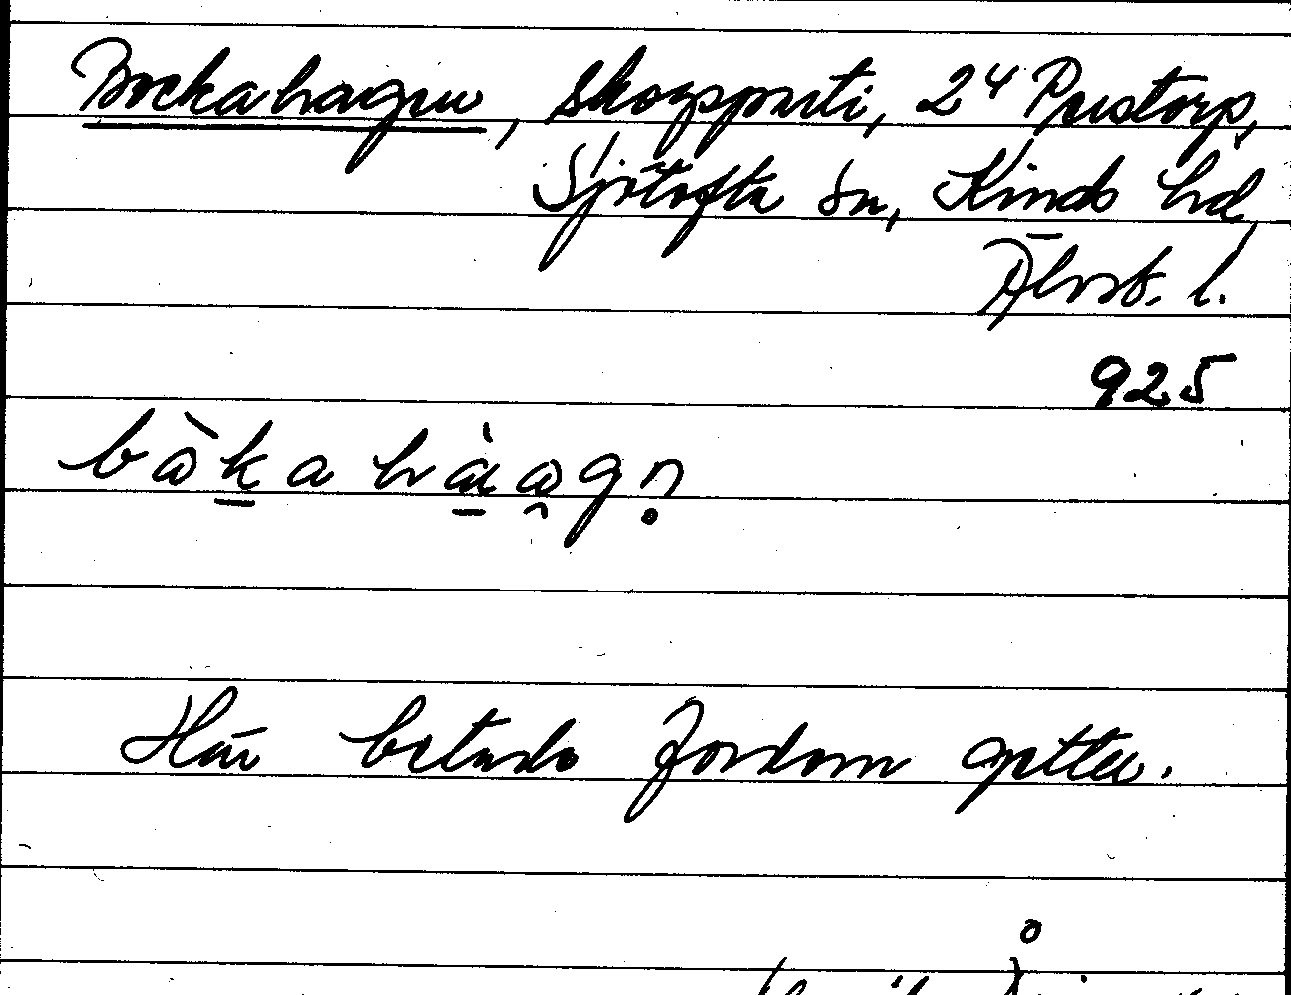 Bockahagen, skogsparti, 2⁴ Prustorp,
Sjötofta sn, Kinds hd,
Älvsb. l.
925
Här betade fordom getter.